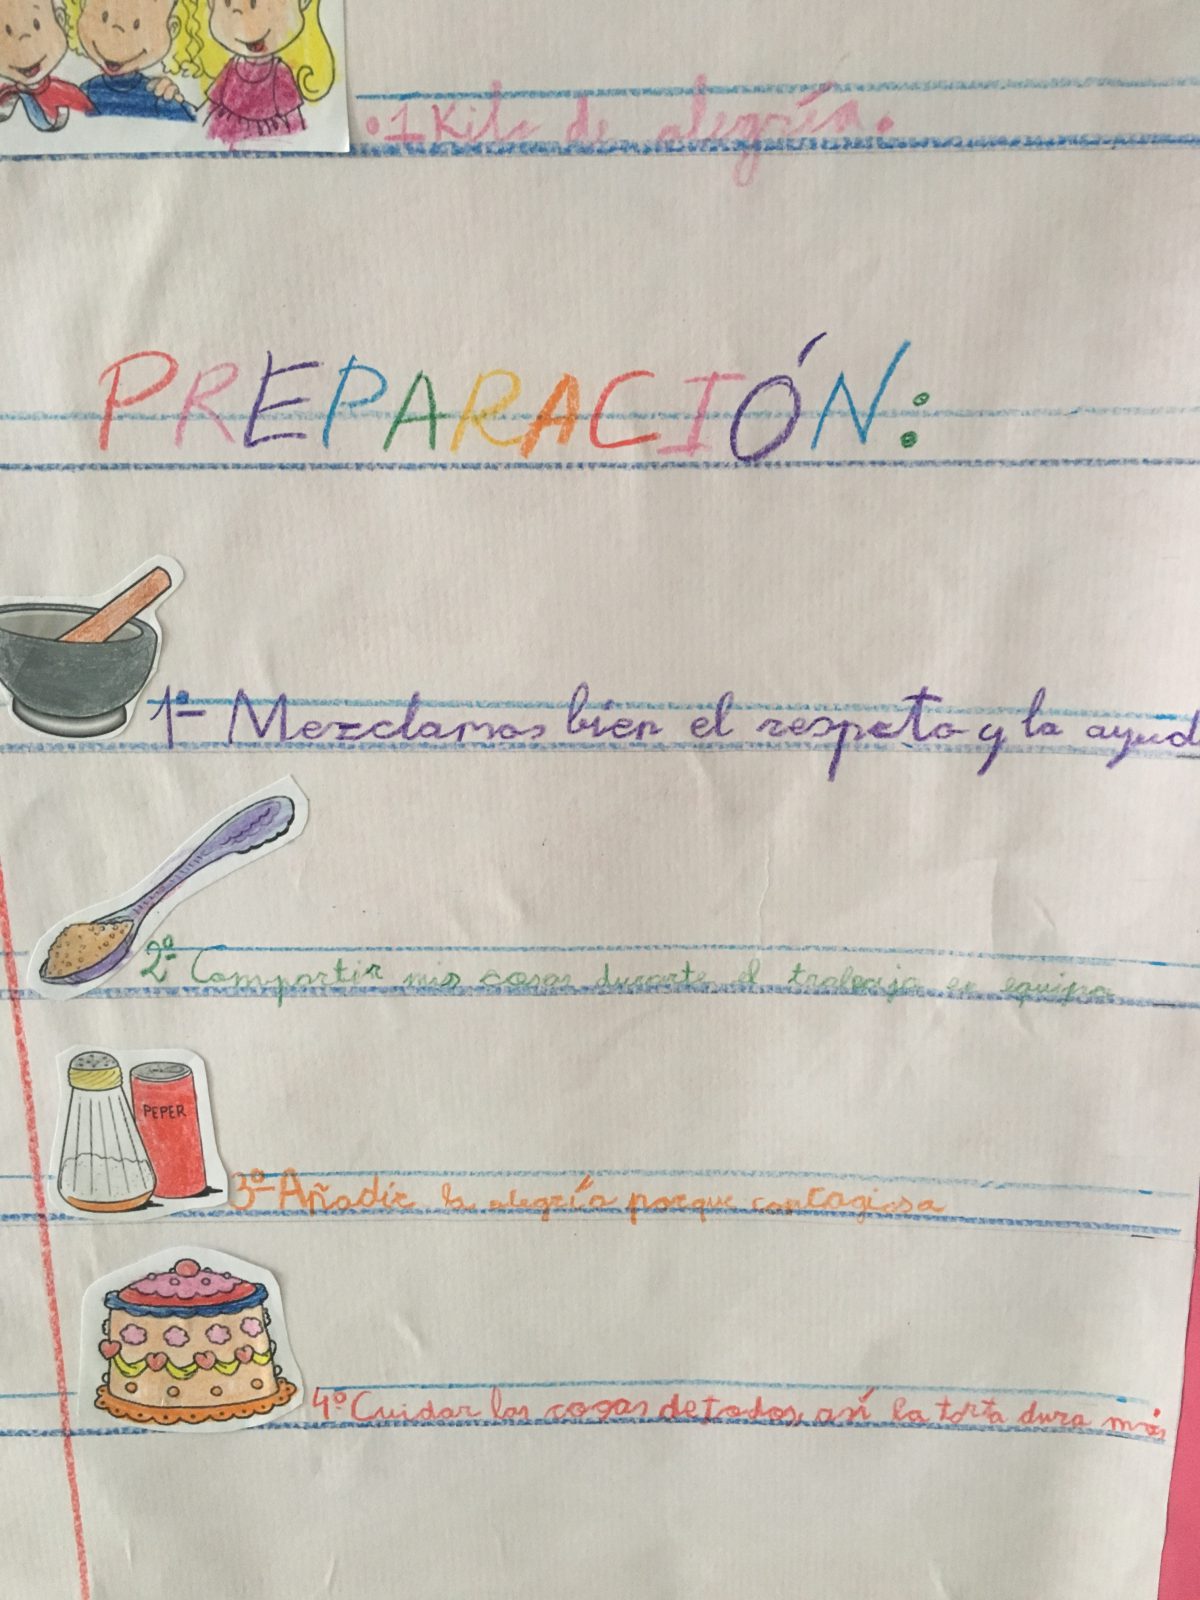 • 1 Kilo de alegría.
PREPARACIÓN:
1º- Mezclamos bien el respeto y la ayud
2º Compartir mis cosas durante el trabajo en equipo
PEPER
3º- Añadir la alegría porque contagiosa
4º Cuidar las cosas de todos, así la torta dura más